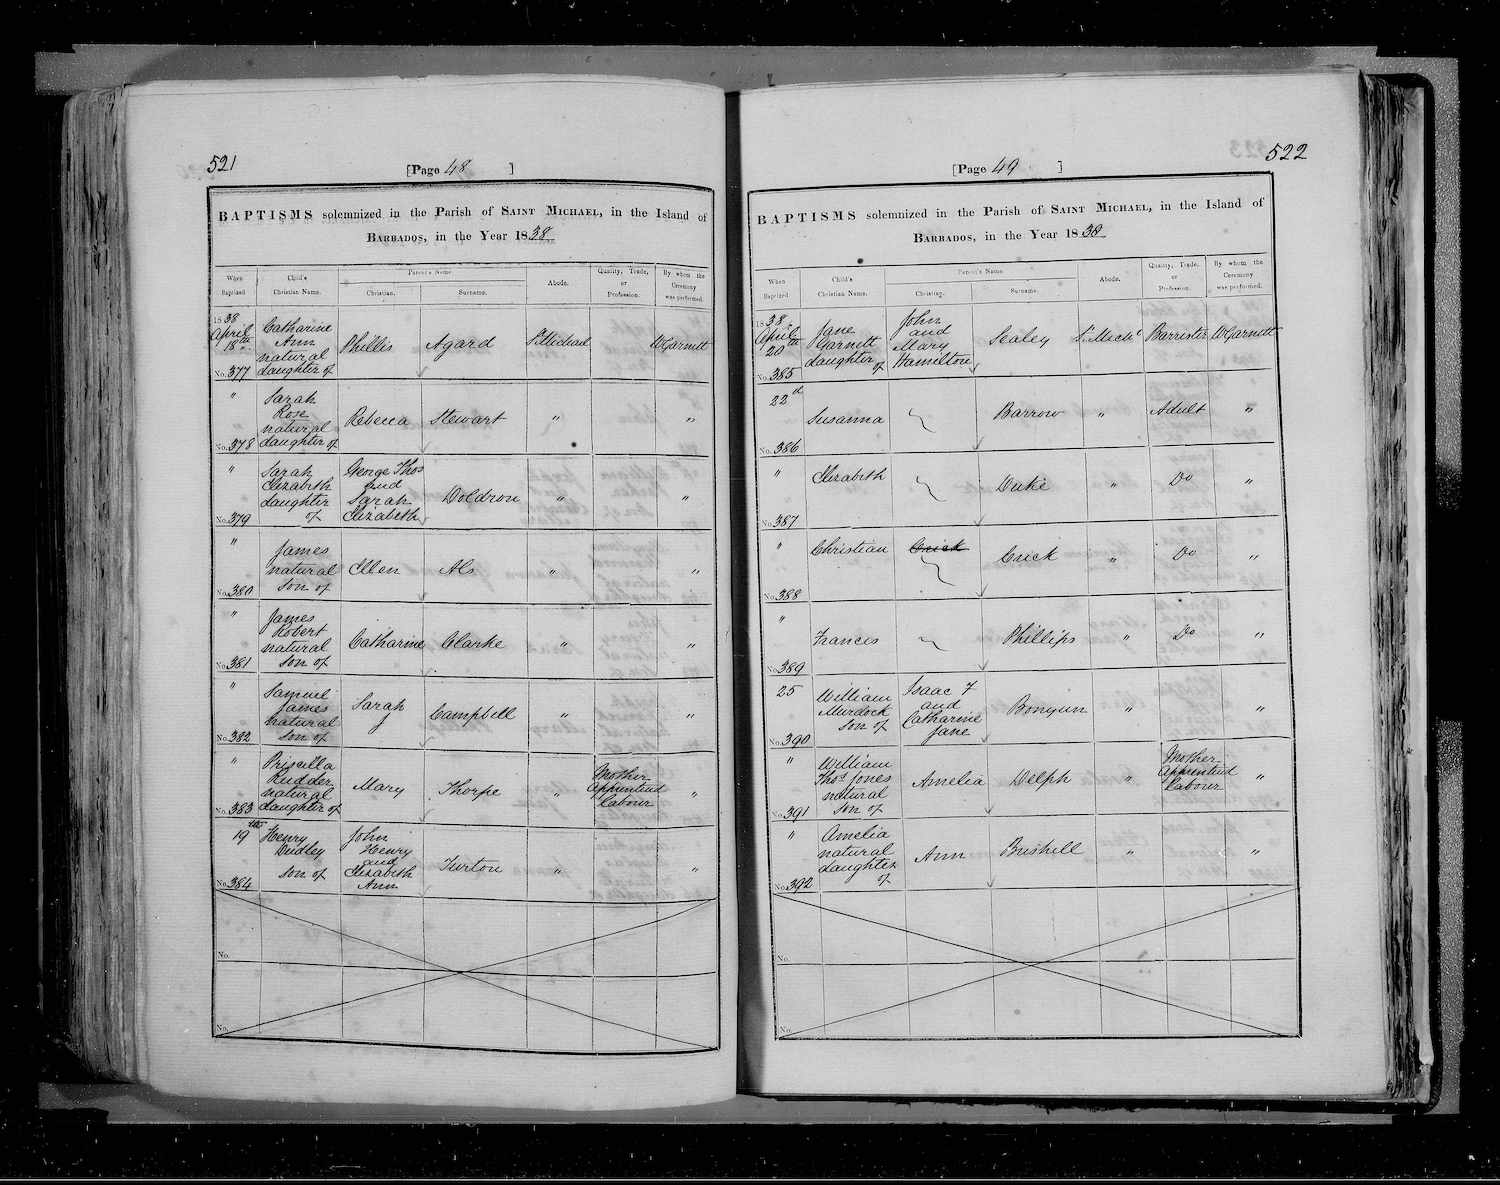 521
[Page 48 ]
BAPTISMS solemnized in the Parish of SAINT MICHAEL, in the Island of
BARBADOS, in the Year 1838
When Baptized
Child's Christian Name.
Parent's Name
Christian.
Surname.
Abode.
Quality, Trade, or Profession.
By whom the Ceremony was performed.
1838
April 18th
No. 377
Catharine
Ann
natural
daughter of
Phillis
Agard
St. Michael
W Garnett
"
No. 378
Sarah
Rose
natural
daughter of
Rebecca
Stewart
"
"
"
No. 379
Sarah
Elizabeth
daughter
of
George Thos
and
Sarah
Elizabeth
Doldron
"
"
"
No. 380
James
natural
son of
Ellen
Als
"
"
"
No. 381
James
Robert
natural
son of
Catharine
Clarke
"
"
"
No. 382
Samuel
James
natural
son of
Sarah
J
Campbell
"
"
"
No. 383
Priscilla
Rudder
natural
daughter of
Mary
Thorpe
"
Mother
Apprenticed
Labour
"
19th
No. 384
Henry
Dudley
son of
John
Henry
and
Elizabeth
Ann
Turton
"
"
No.
No.
522
[Page 49 ]
BAPTISMS solemnized in the Parish of SAINT MICHAEL, in the Island of
BARBADOS, in the Year 1838
When Baptized
Child's Christian Name.
Parent's Name
Christian.
Surname.
Abode.
Quality, Trade, or Profession.
By whom the Ceremony was performed.
1838
April 20th
No. 385
Jane
Garnett
daughter of
John
and
Mary
Hamilton
Sealey
St Mich'l
Barrister
W Garnett
22d
No. 386
Susanna
Barrow
"
Adult
"
"
No. 387
Elizabeth
Duke
"
Do
"
"
No. 388
Christian
Crick
Crick
"
Do
"
"
No. 389
Frances
Phillips
"
Do
"
25
No. 390
William
Murdock
son of
Isaac F
and
Catharine
Jane
Bonyun
"
"
"
No. 391
William
Thos Jones
natural
son of
Amelia
Delph
"
Mother
Apprenticed
Labour
"
"
No. 392
Amelia
natural
daughter
of
Ann
Bushell
"
"
No.
No.